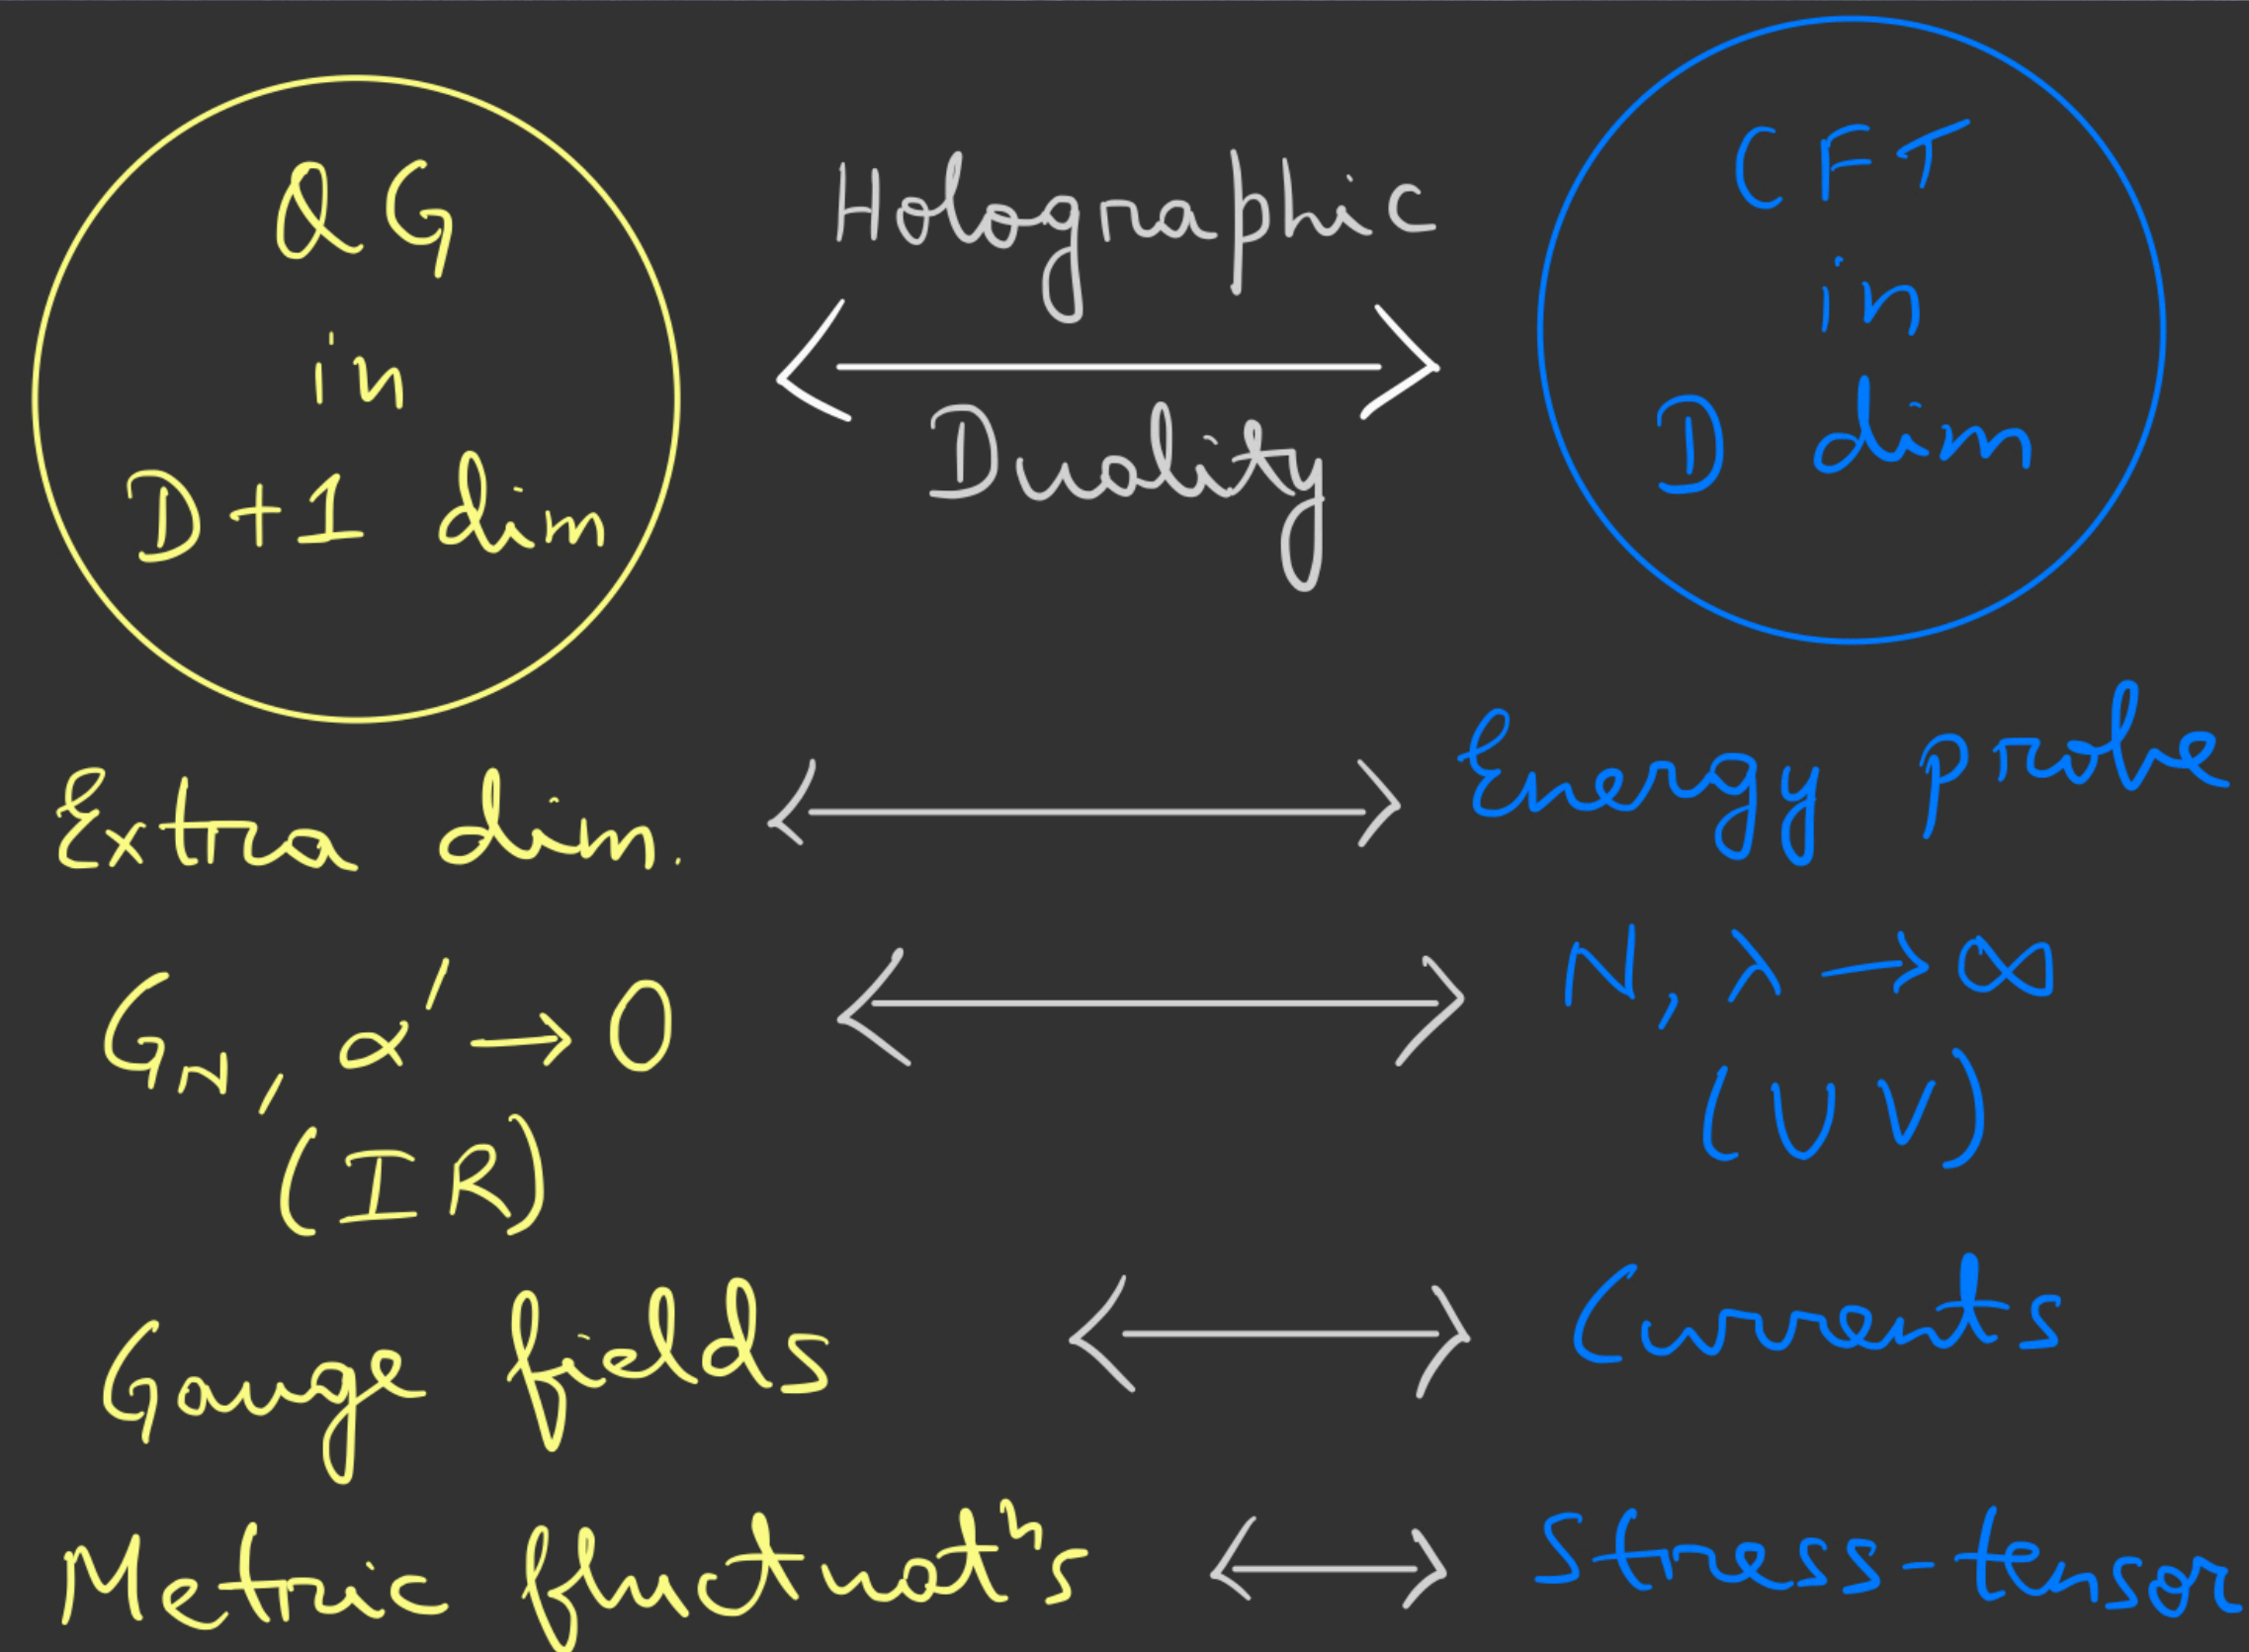 QG
in
D+1 dim
Holographic
Duality
CFT
in
D dim
Extra dim. Energy probe
G_N, α' → 0 N, λ → ∞
(IR) (UV)
Gauge fields Currents
Metric fluctuatⁿs Stress-tensor